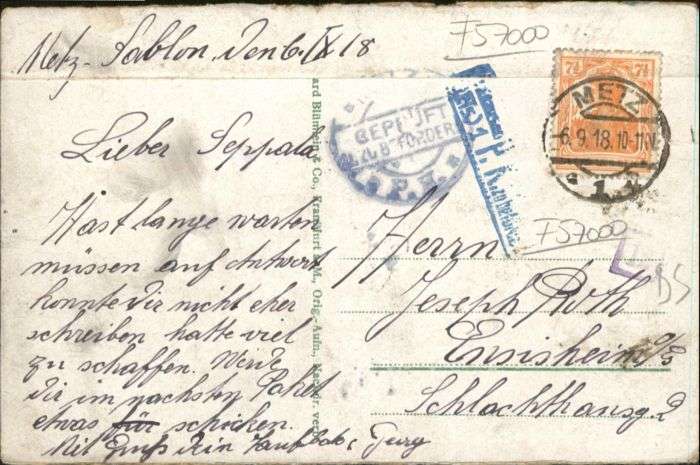 Metz-Sablon, den 6. IX 18
F57000
7½ 7½
METZ
6.9.18.10-11V.
* 1. *
GEPRÜFT
ZU BEFÖRDERN
P.K.
Lieber Seppala
Hast lange warten
müssen auf Antwort
konnte Dir nicht eher
schreiben hatte viel
zu schaffen. Werde
dir im nächsten Paket
etwas für schicken.
Mit Gruß Dein
Herrn
Joseph Roth
Ensisheim O/E
Schlachthausg. 2
F57000
DS
& Co., Frankfurt a. M., Orig.-Aufn.,